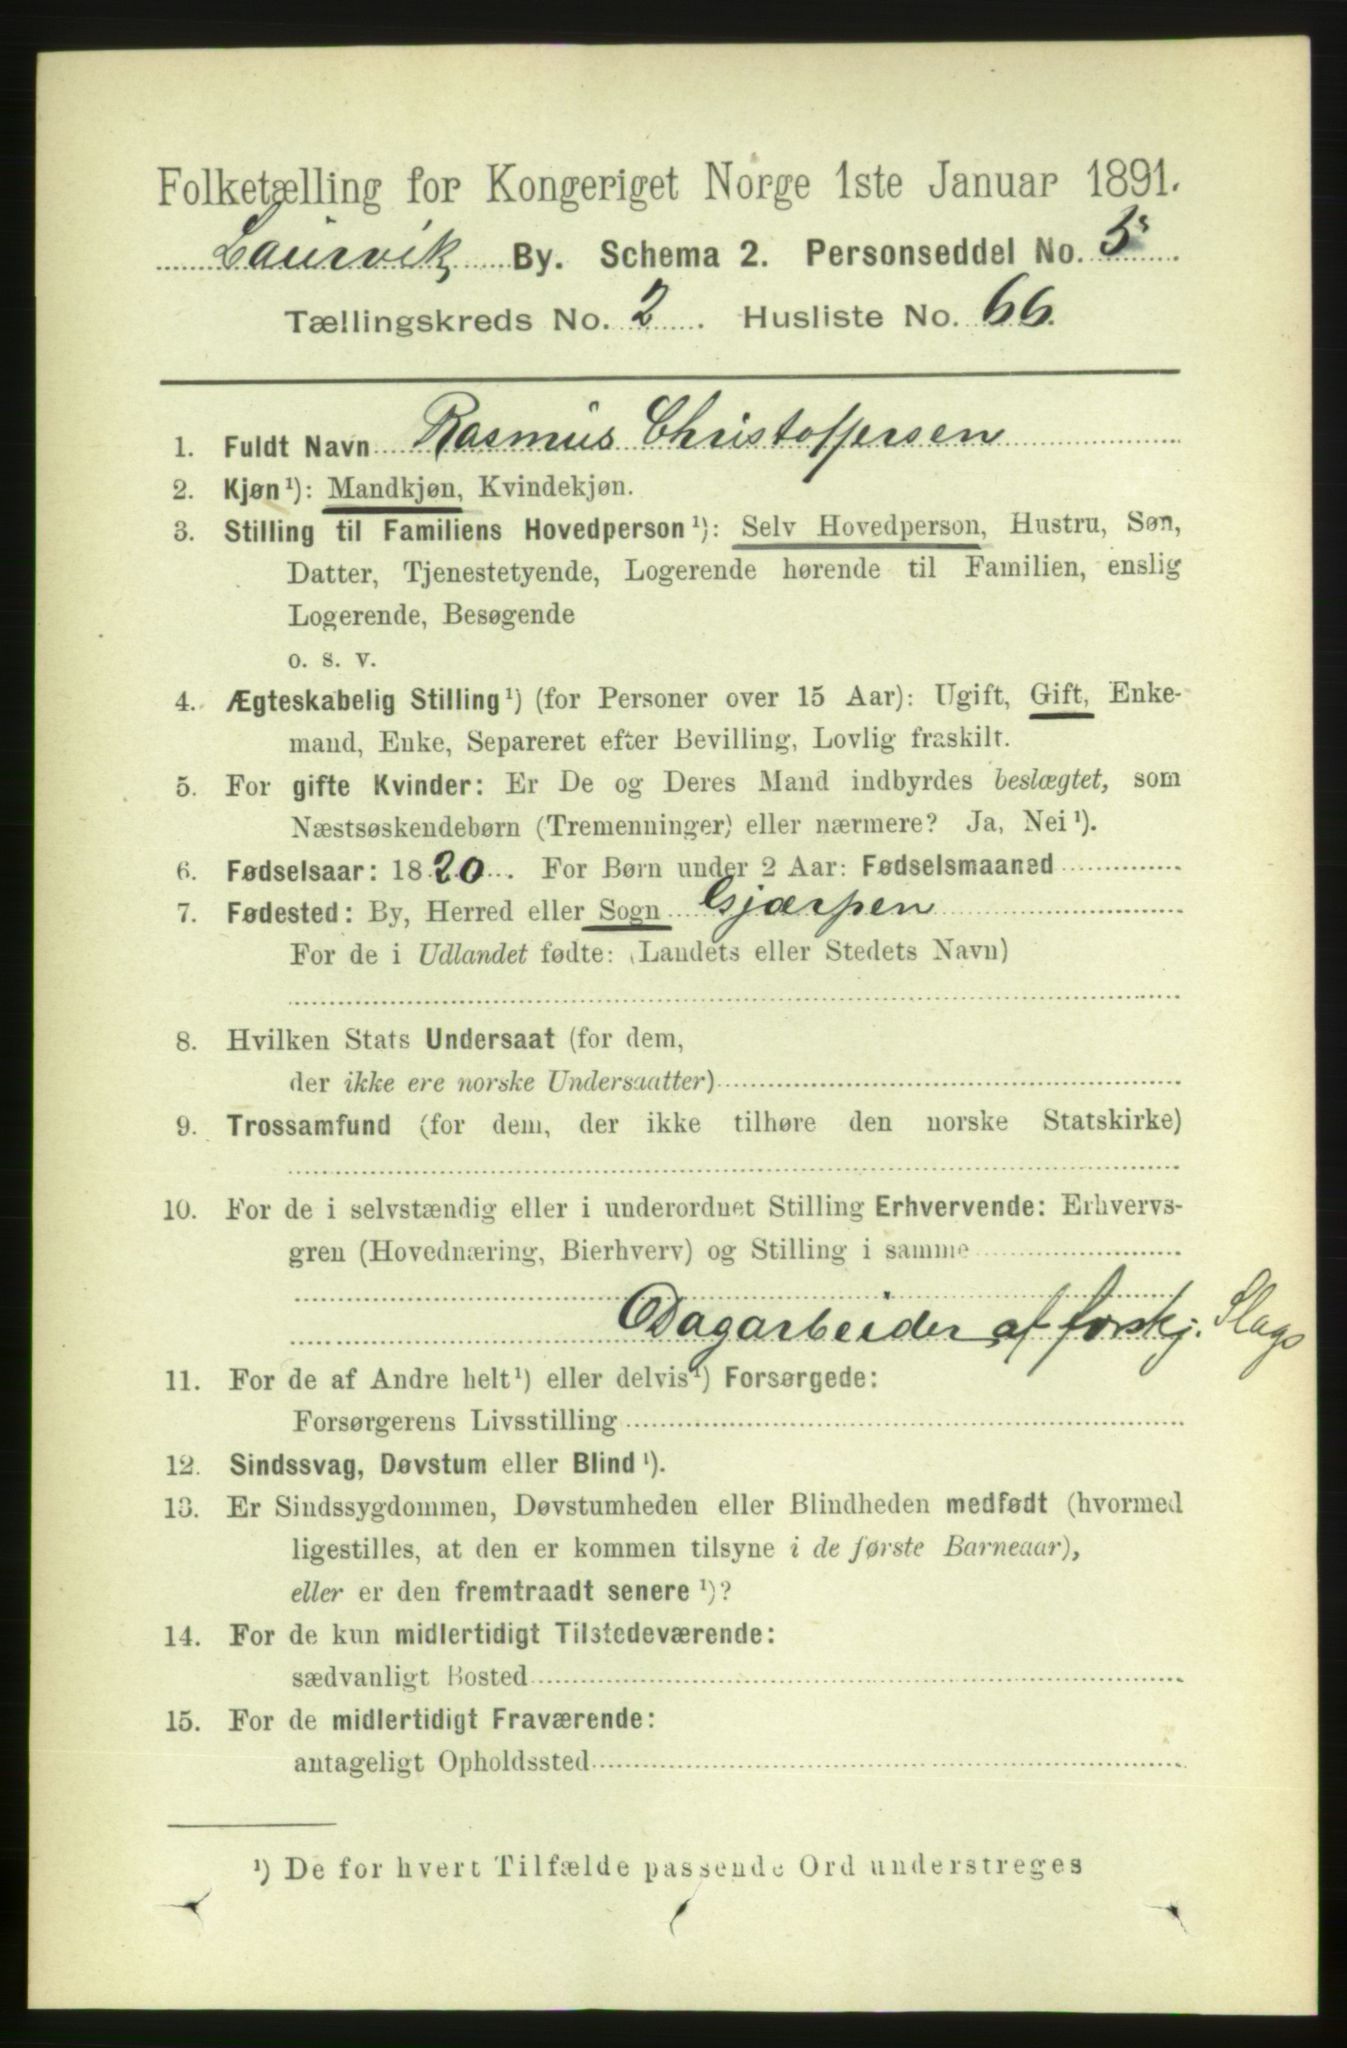 Folketælling for Kongeriget Norge 1ste Januar 1891.
Laurvik By. Schema 2. Personseddel No. 5
Tællingskreds No. 2. Husliste No. 66.
1. Fuldt Navn Rasmus Christoffersen
2. Kjøn¹): Mandkjøn, Kvindekjøn.
3. Stilling til Familiens Hovedperson¹): Selv Hovedperson, Hustru, Søn,
Datter, Tjenestetyende, Logerende hørende til Familien, enslig
Logerende, Besøgende
o. s. v.
4. Ægteskabelig Stilling¹) (for Personer over 15 Aar): Ugift, Gift, Enke-
mand, Enke, Separeret efter Bevilling, Lovlig fraskilt.
5. For gifte Kvinder: Er De og Deres Mand indbyrdes beslægtet, som
Næstsøskendebørn (Tremenninger) eller nærmere? Ja, Nei¹).
6. Fødselsaar: 1820. For Børn under 2 Aar: Fødselsmaaned
7. Fødested: By, Herred eller Sogn Gjærpen
For de i Udlandet fødte: (Landets eller Stedets Navn)
8. Hvilken Stats Undersaat (for dem,
der ikke ere norske Undersaatter)
9. Trossamfund (for dem, der ikke tilhøre den norske Statskirke)
10. For de i selvstændig eller i underordnet Stilling Erhvervende: Erhvervs-
gren (Hovednæring, Bierhverv) og Stilling i samme
Dagarbeider af forskj. Slags
11. For de af Andre helt¹) eller delvis¹) Forsørgede:
Forsørgerens Livsstilling
12. Sindssvag, Døvstum eller Blind¹).
13. Er Sindssygdommen, Døvstumheden eller Blindheden medfødt (hvormed
ligestilles, at den er kommen tilsyne i de første Barneaar),
eller er den fremtraadt senere¹)?
14. For de kun midlertidigt Tilstedeværende:
sædvanligt Bosted
15. For de midlertidigt Fraværende:
antageligt Opholdssted
¹) De for hvert Tilfælde passende Ord understreges